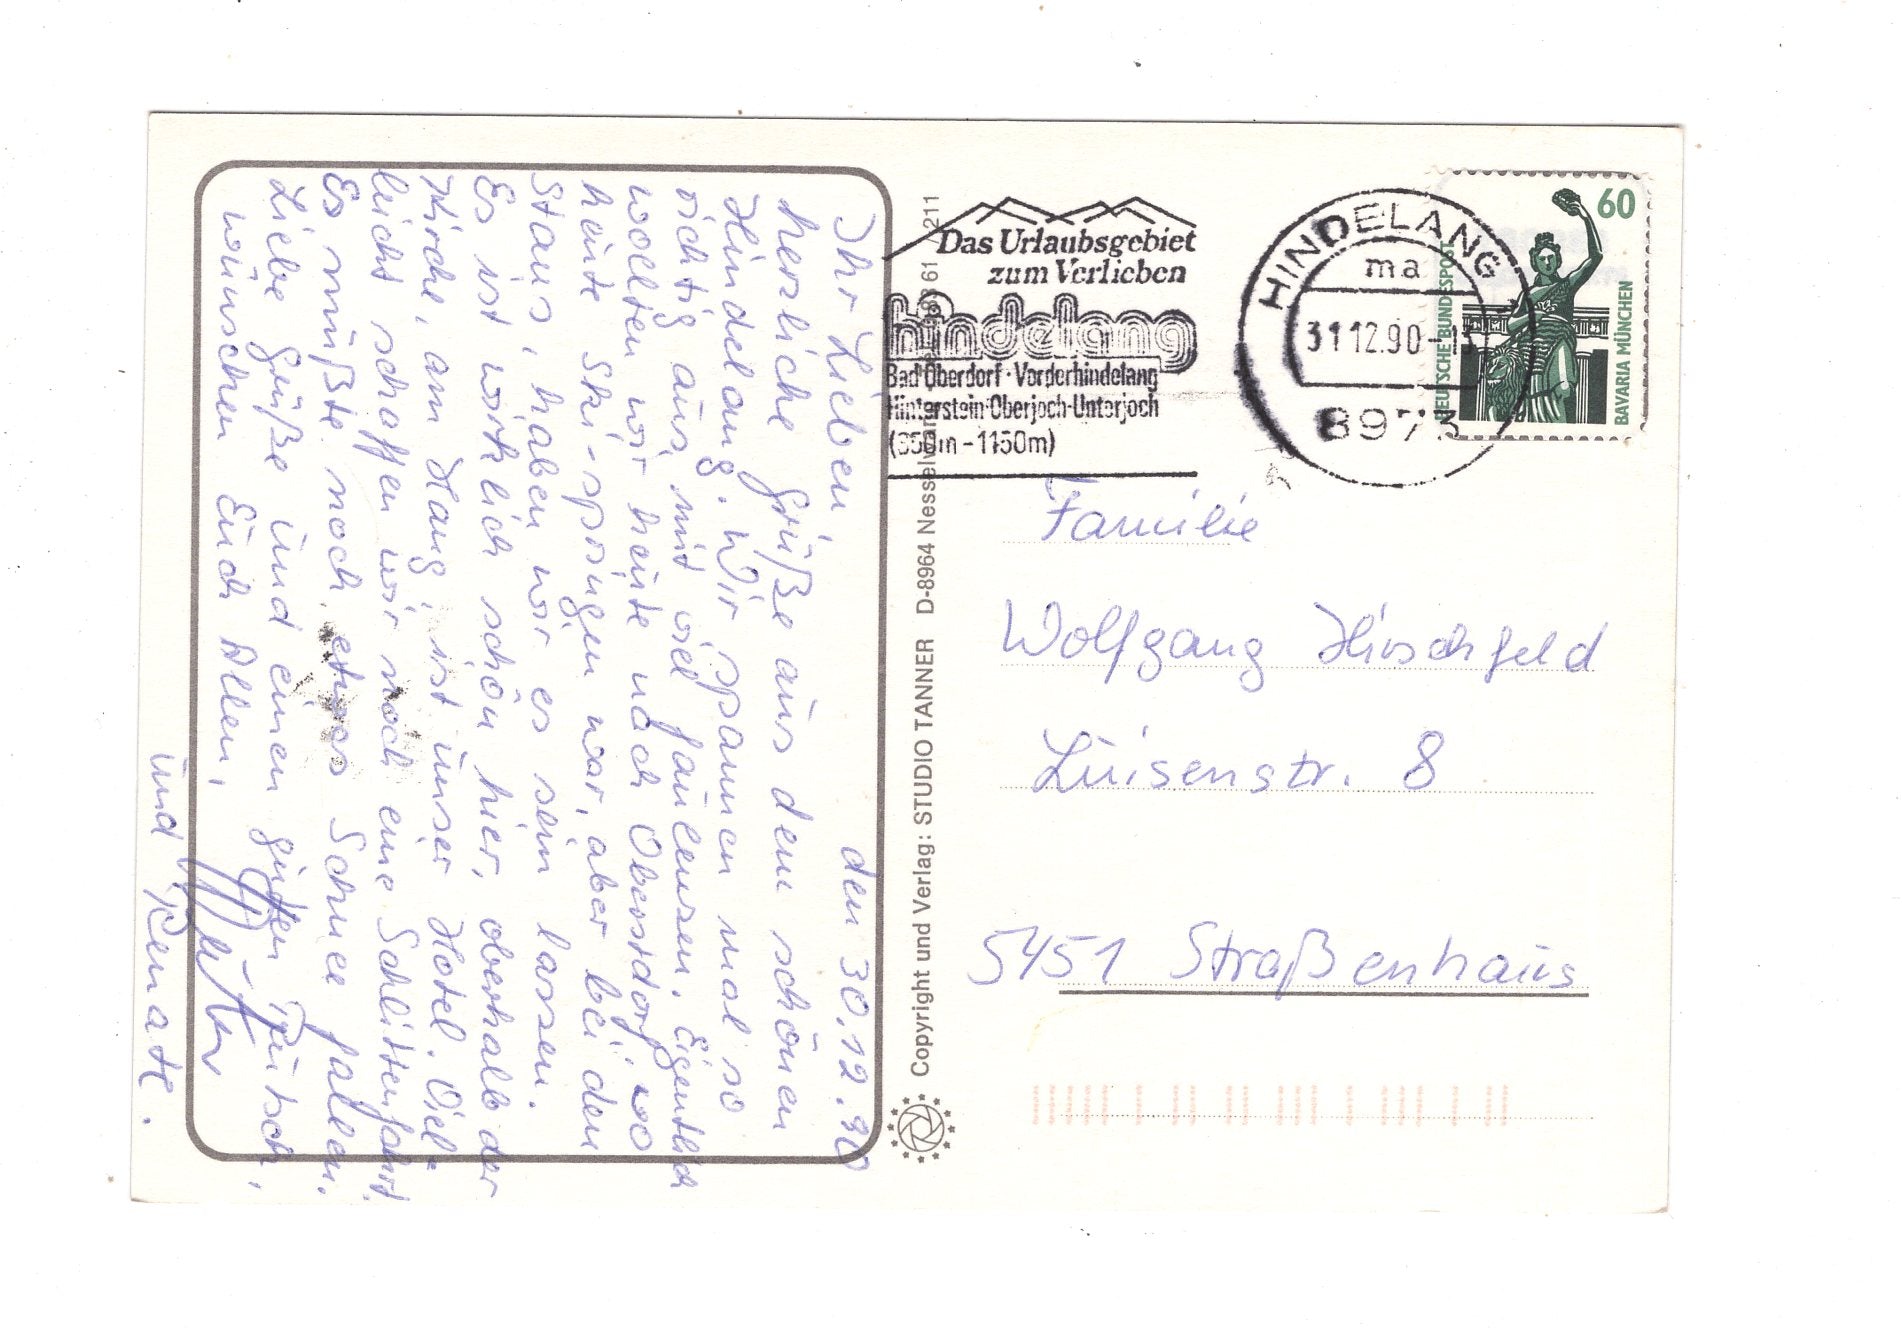 den 30.12.90
Ihr Lieben,
herzliche Grüße aus dem schönen
Hindelang. Wir spannen mal so
richtig aus, mit viel faulenzen. Eigentlich
wollten wir heute nach Oberstdorf, wo
heute Ski-springen war, aber bei den
Staus, haben wir es sein lassen.
Es ist wirklich schön hier, oberhalb der
Kirche, am Hang, ist unser Hotel. Viel=
leicht schaffen wir noch eine Schlittenfahrt.
Es müßte noch etwas Schnee fallen.
Liebe Grüße und einen guten Rutsch,
wünschen Euch Allen,
und Renate.
Copyright und Verlag: STUDIO TANNER D-8964 Nesselwang
61 211
Das Urlaubsgebiet
zum Verlieben
hindelang
Bad Oberdorf · Vorderhindelang
Hinterstein·Oberjoch·Unterjoch
(850m - 1150m)
HINDELANG
ma
31.12.90-15
8973
60
DEUTSCHE BUNDESPOST
BAVARIA MÜNCHEN
Familie
Wolfgang Hirschfeld
Luisenstr. 8
5451 Straßenhaus